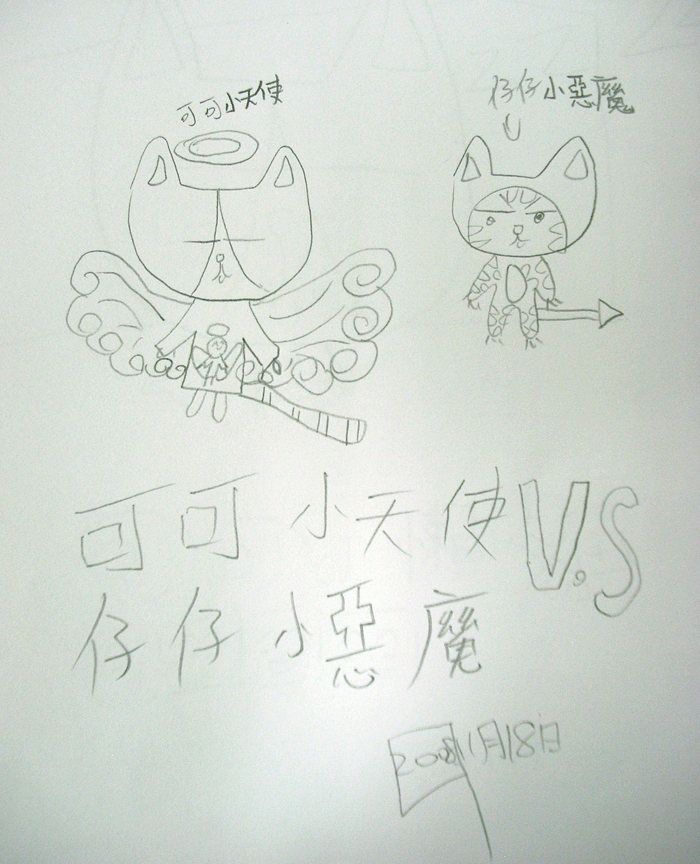 可可小天使
仔仔小惡魔
可可小天使V.S
仔仔小惡魔
2008 1月18日